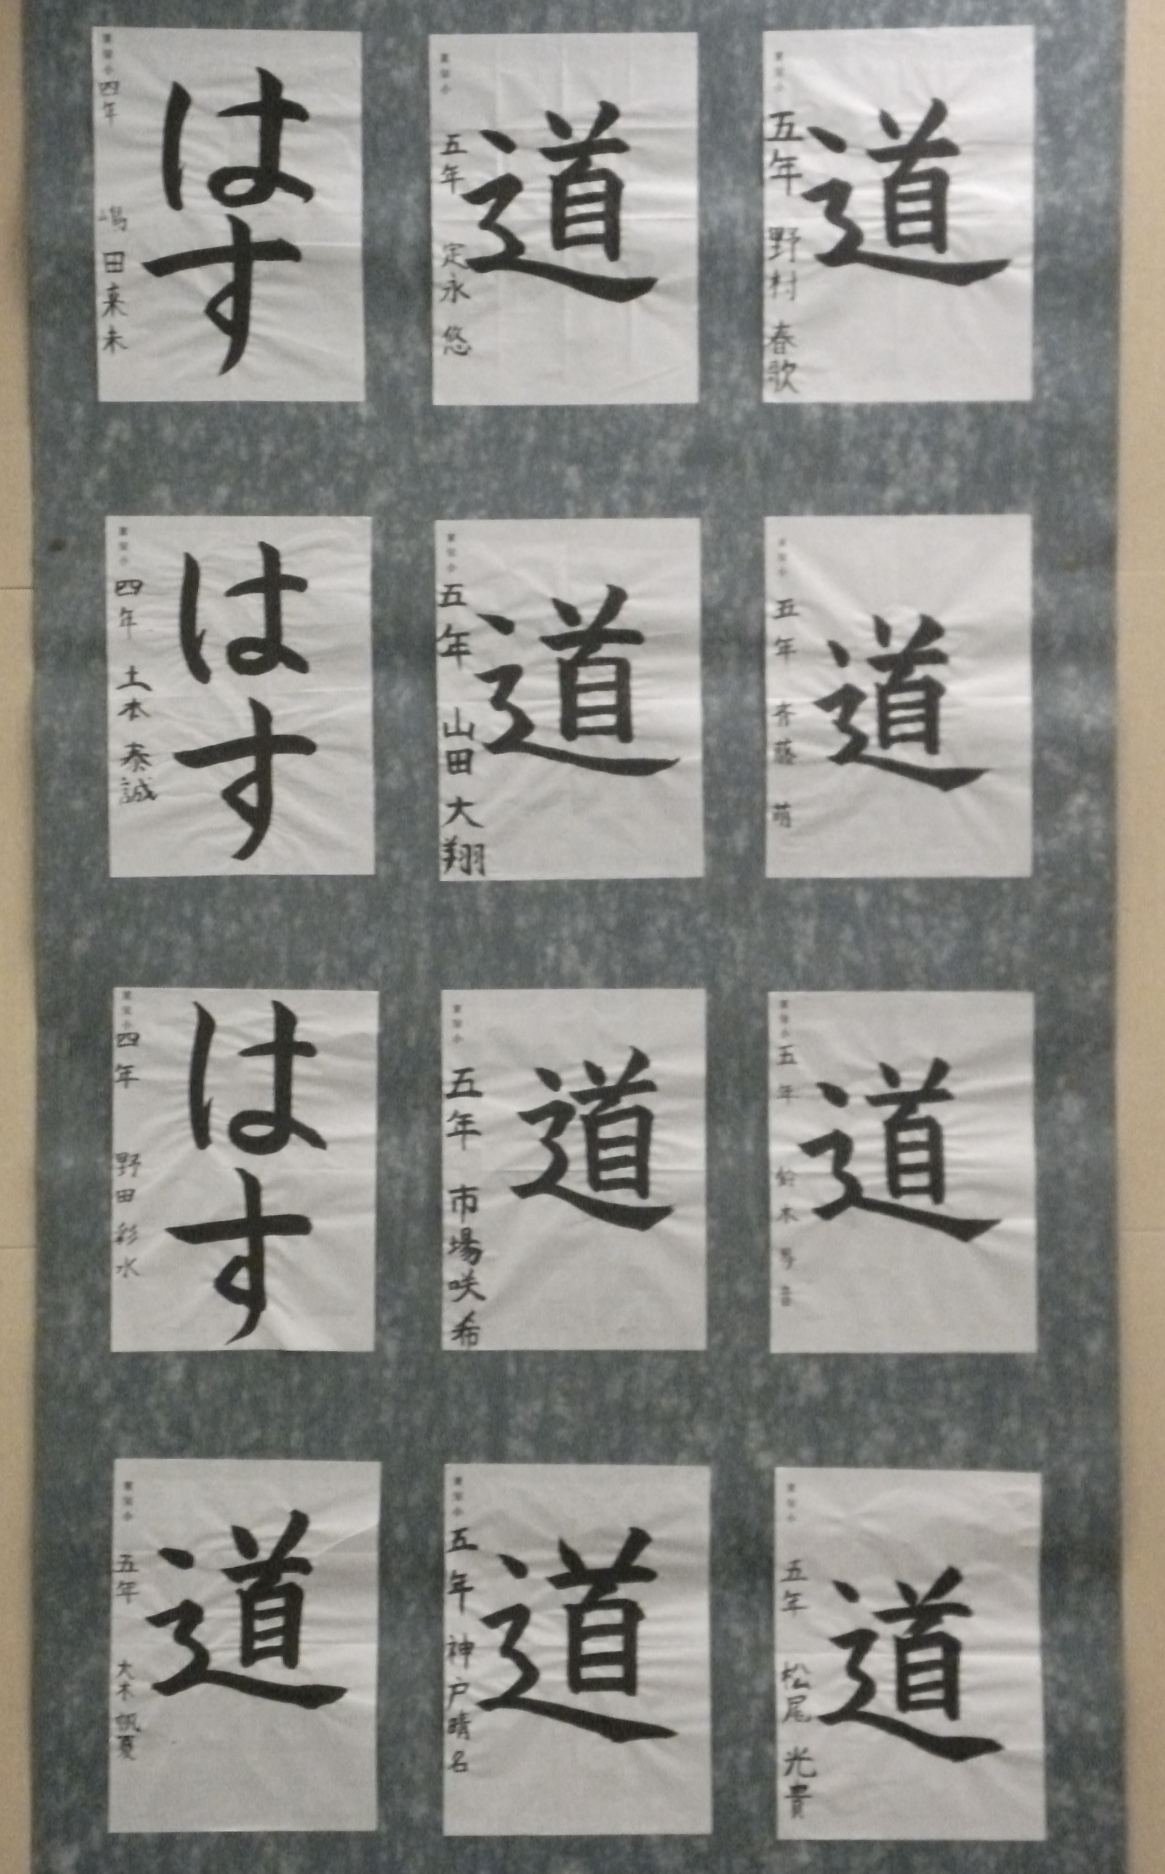 はす
四年
嶋田来未
道
五年
定永 悠
道
五年
野村 春歌
はす
四年
土本 泰誠
道
五年
山田 大翔
道
五年
斉藤 萌
はす
四年
野田 彩水
道
五年
市場咲希
道
五年
鈴木
道
五年
大木 帆夏
道
五年
神戸晴名
道
五年
松尾 光貴